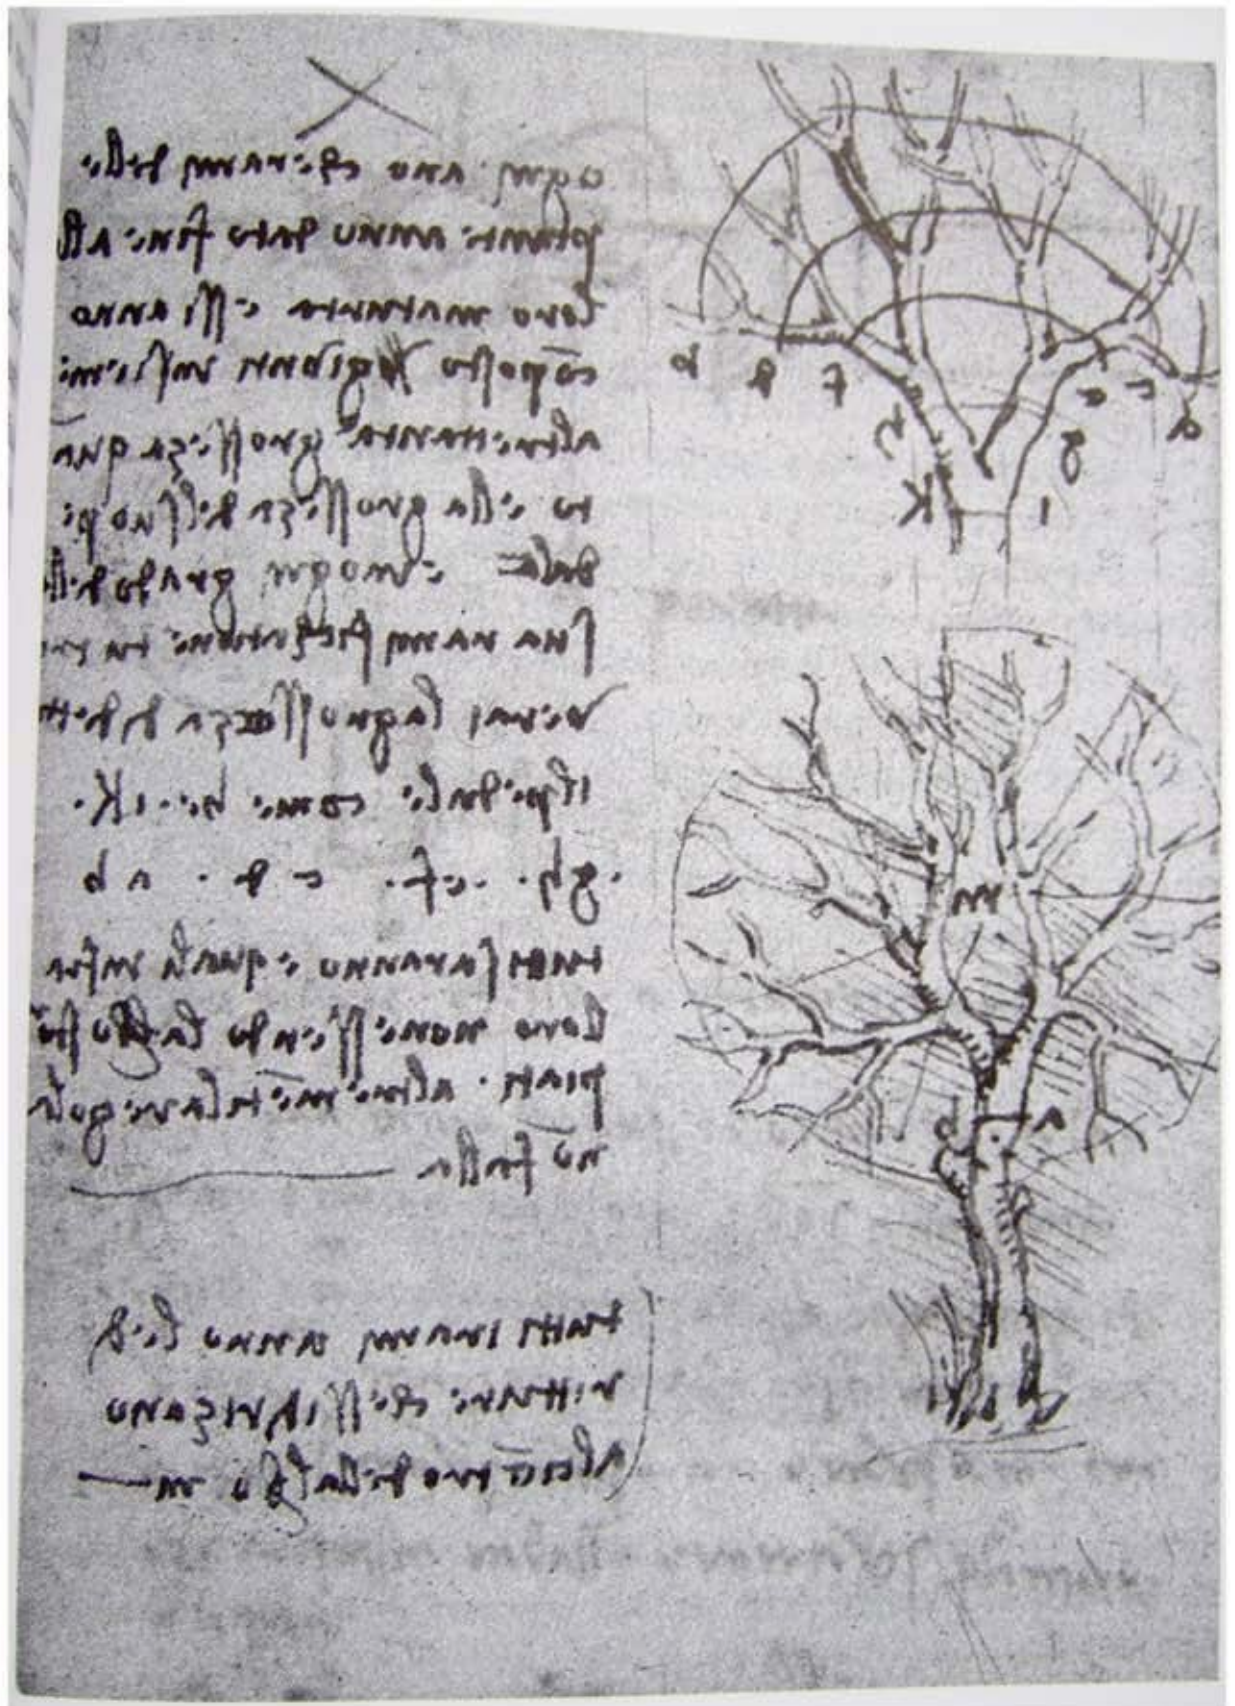 ogni ano che i rami delle
piante anno dato fine alla
loro maturatura essi anno
cōposto ragiunti insieme
altrettanta grosseza quā
to e lla grosseza del suo pe
dale e in ogni grado della
sua ramifichatione tu tro
verai la grosseza del dett
o pedale come he i k.
.gh. .ef. cd. ab
tutti saranno equali infra
loro non essendo
altrimēti la regola
nō falla
tutti i rami anno le d
iritture che si drizano
al cētro dell m
k i
h g
f e
d c
b a
m
b a